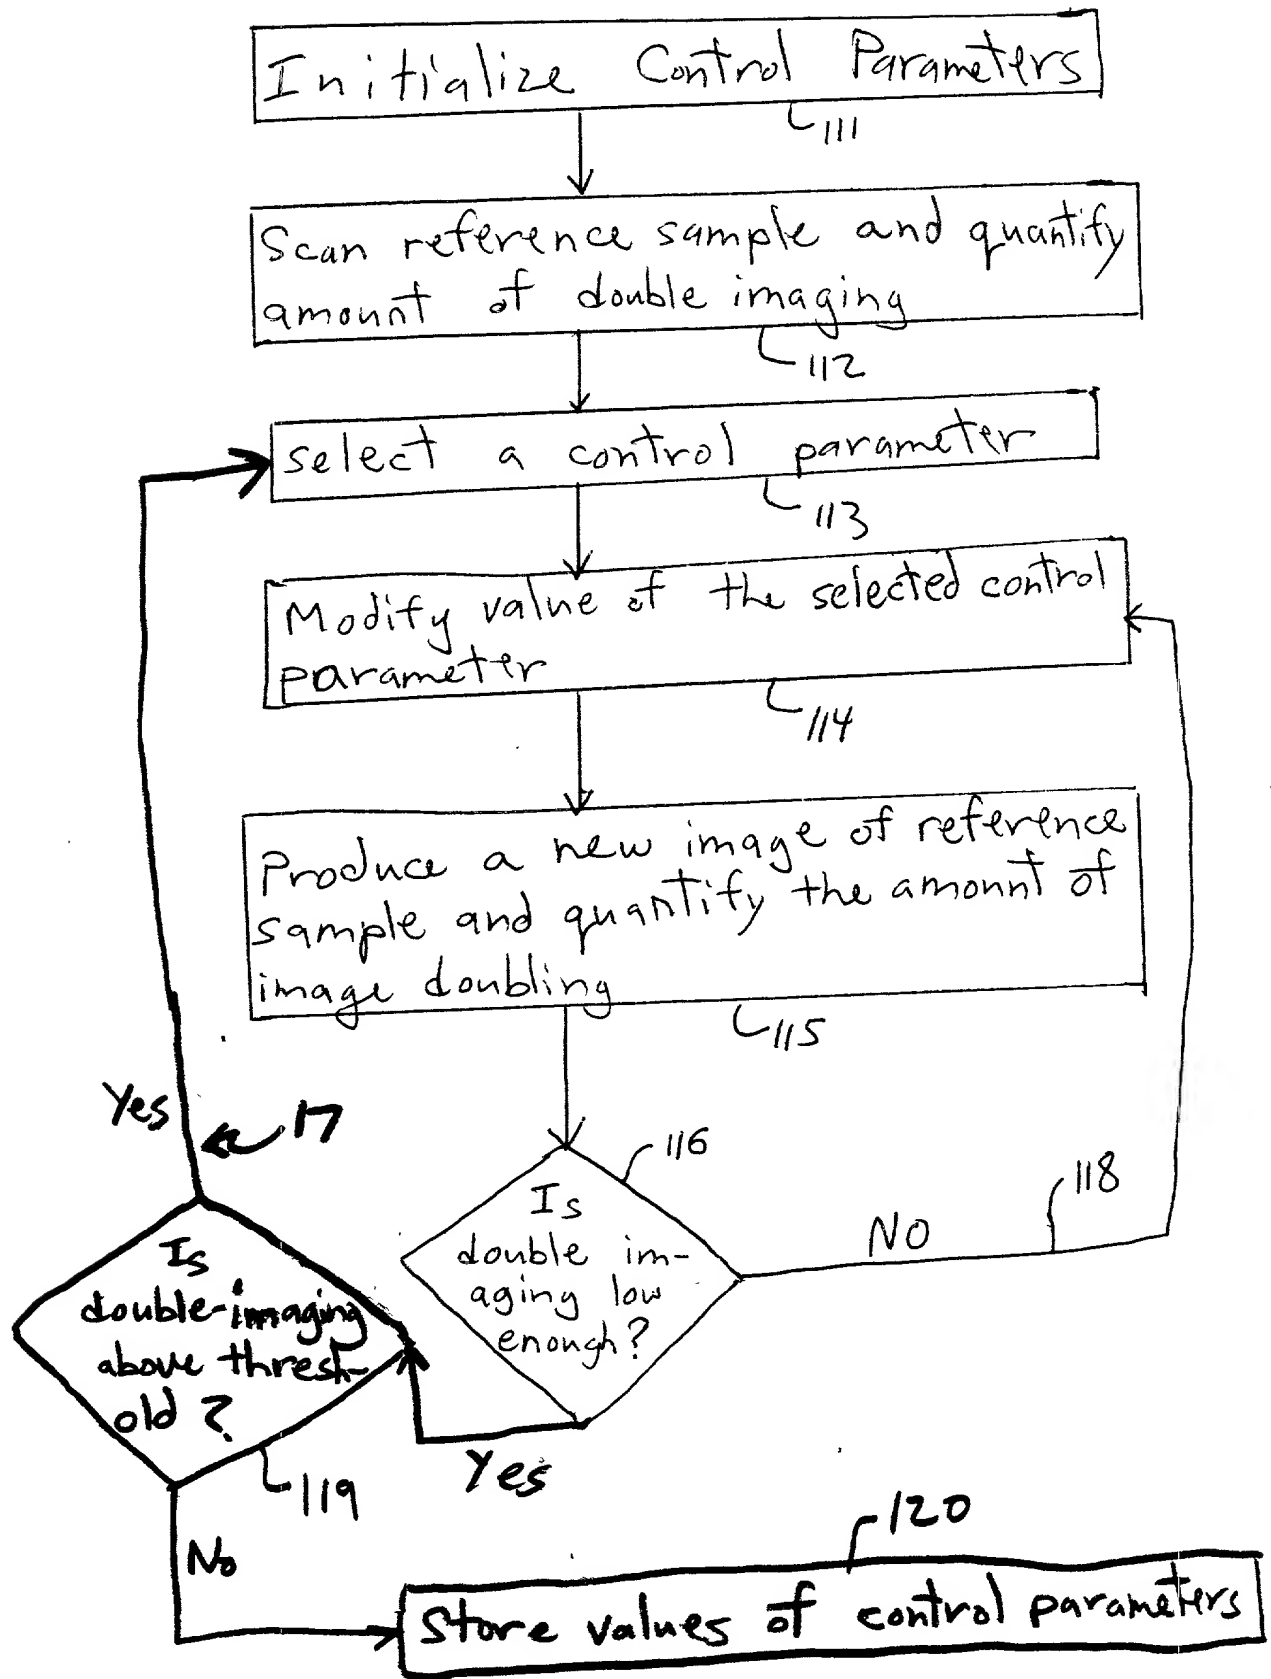 Initialize Control Parameters
111
Scan reference sample and quantify
amount of double imaging
112
select a control parameter
113
Modify value of the selected control
parameter
114
Produce a new image of reference
sample and quantify the amount of
image doubling
115
Yes
17
116
Is
double im-
aging low
enough?
NO
118
Is
double-imaging
above thresh-
old?
119
Yes
No
120
Store values of control parameters